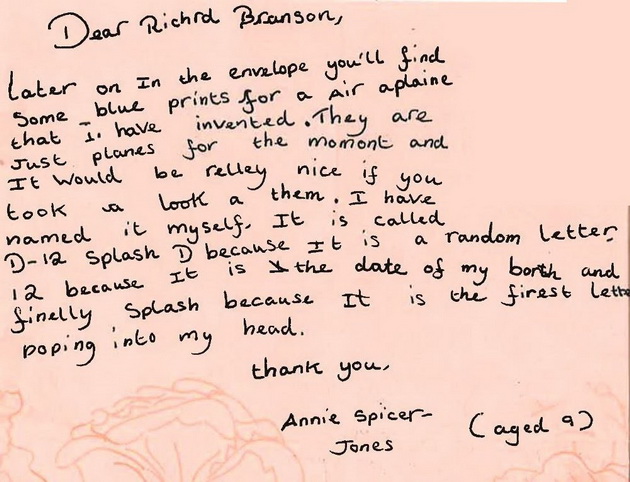 Dear Richrd Branson,
Later on In the envelope you'll find
Some blue prints for a Air aplaine
that I. have invented. They are
Just planes for the momont and
It Would be relley nice if you
took a look a them. I have
named it myself. It is called
D-12 Splash D because It is a random letter.
12 because It is the date of my borth and
finelly Splash because It is the firest lette
poping into my head.
thank you,
Annie Spicer-
Jones
(aged 9)